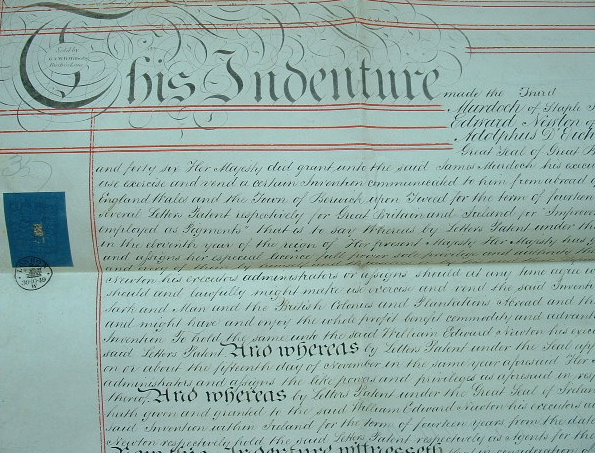 Sold by
This Indenture
made the Third
Murdoch of Staple
Edward Newton of
Adolphus D'
Great Seal of Great
and forty six Her Majesty did grant unto the said James Murdoch his
use exercise and vend a certain Invention communicated to him from abroad
England Wales and the Town of Berwick upon Tweed for the term of fourteen
several Letters Patent respectively for Great Britain and Ireland for
employed as Pigments" that is to say Whereas by Letters Patent under
in the eleventh year of the reign of Her present Majesty Her Majesty has
and assigns her especial licence full power sole privilege and authority
Newton his executors administrators or assigns should at any time agree
should and lawfully might make use exercise and vend the said
Sark and Man and the British Colonies and Plantations Abroad and
and might have and enjoy the whole profit benefit commodity and
Invention To hold the same unto the said William Edward Newton his
said Letters Patent And whereas by Letters Patent under the Seal
on or about the fifteenth day of November in the same year aforesaid Her
administrators and assigns the like powers and privileges as aforesaid in
thereof And whereas by Letters Patent under the Great Seal of
hath given and granted to the said William Edward Newton his executors
said Invention within Ireland for the term of fourteen years from the
Newton respectively hold the said Letters Patent respectively as Agents for the
Now this Indenture witnesseth that in consideration of